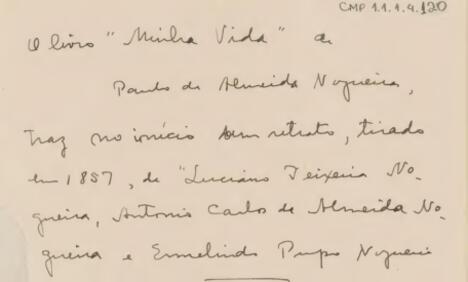 CMP 1.1.1.9.120
O livro "Minha Vida" de
Paulo de Almeida Nogueira,
traz no início um retrato, tirado
em 1857, de "Luciano Teixeira No-
gueira, Antonio Carlos de Almeida No-
gueira e Ermelindo Pupo Nogueira